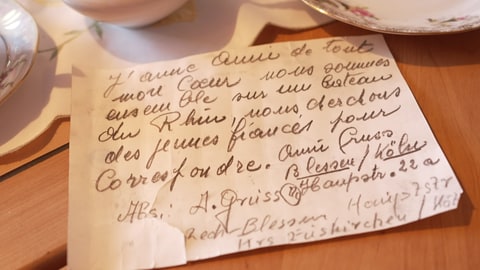 J'aime Anni de tout
mon Cœur nous sommes
ensemble sur un bateau
du Rhin, nous cherchons
des jeunes francés pour
Correspondre. Anni Gruss
Blessen / Köln
Abs: A. Gruss Haupstr. 22 a
Blessem Haupstr
Krs Euskirchen / Köl